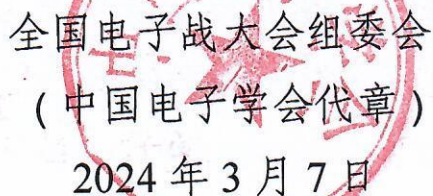 全国电子战大会组委会
(中国电子学会代章)
2024年3月7日